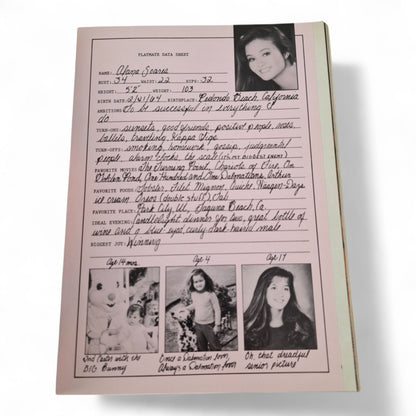 PLAYMATE DATA SHEET
NAME: Alana Soares
BUST: 34 WAIST: 22 HIPS: 32
HEIGHT: 5'2" WEIGHT: 103
BIRTH DATE: 2/21/64 BIRTHPLACE: Redondo Beach, California
AMBITIONS: To be successful in everything I
do
TURN-ONS: sunsets, good friends, positive people, roses,
ballets, traveling, Kappa Sigs
TURN-OFFS: smoking, homework, gossip, judgmental
people, alarm clocks, the scale (it's my biggest enemy)
FAVORITE MOVIES: The Turning Point, Chariots of Fire, On
Golden Pond, One Hundred and One Dalmatians, Arthur
FAVORITE FOODS: Lobster, Filet Mignon, Quiche, Haagen-Dazs
ice cream, Oreos (double stuff),
FAVORITE PLACE: Park City, Ut., Laguna Beach, Ca.
IDEAL EVENING: Candlelight dinner for two, great bottle of
wine and a blue eyed, curly dark haired male
BIGGEST JOY: Winning
Age 14 mos.
Age 4
Age 17
2nd Easter with the
BIG Bunny
Once a Dalmation lover,
Always a Dalmation lover
Oh, that dreadful
senior picture